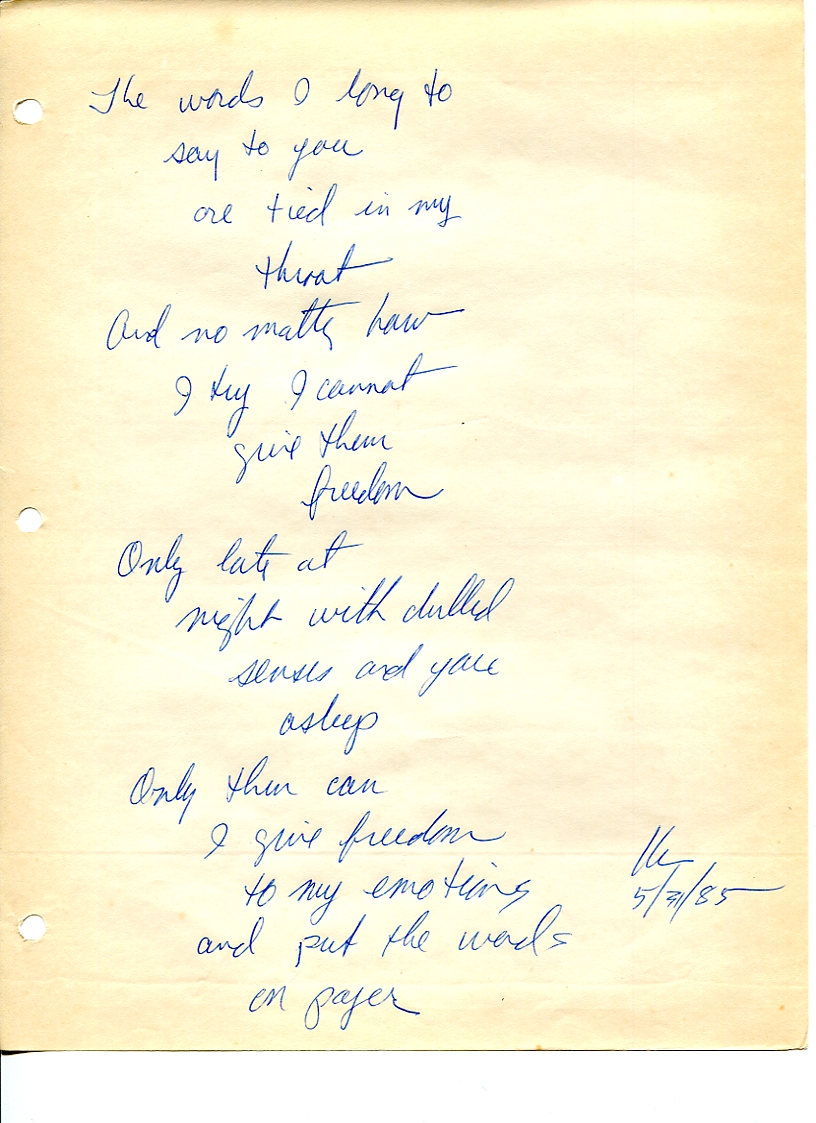 The words I long to
say to you
are tied in my
throat
And no matter how
I try I cannot
give them
freedom
Only late at
night with dulled
senses and you
asleep
Only then can
I give freedom
to my emotions
and put the words
on paper
5/31/85